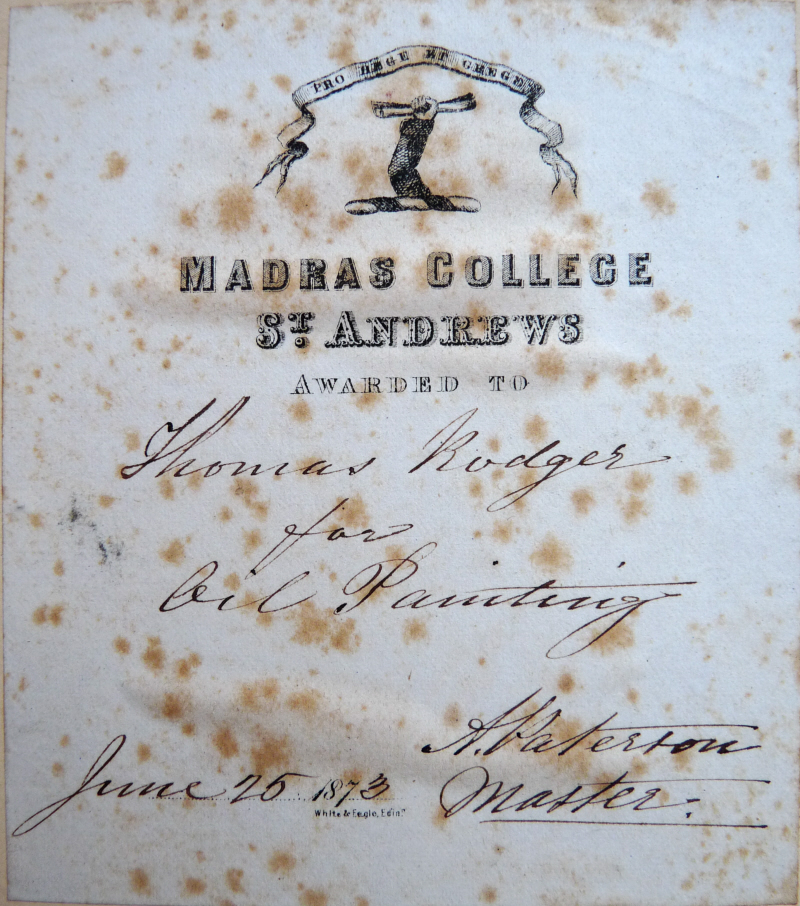 PRO REGE ET GREGE
MADRAS COLLEGE
ST. ANDREWS
AWARDED TO
Thomas Rodger
for
Oil Painting
A. Paterson
June 25 1873 Master.
White & Eeglo, Edinr.